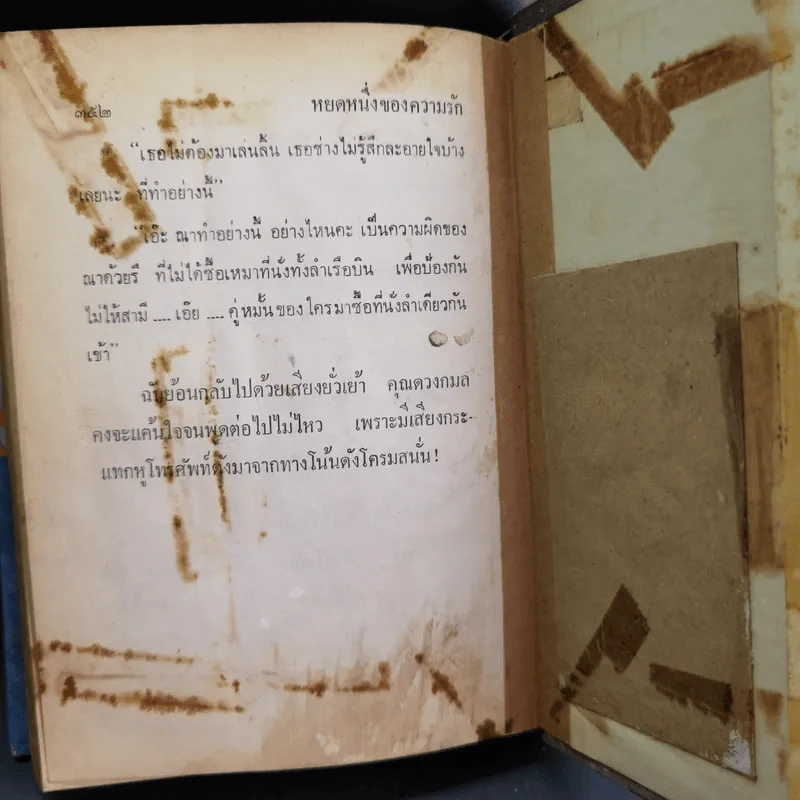 ๓๕๒ หยดหนึ่งของความรัก
"เธอไม่ต้องมาเล่นลิ้น เธอช่างไม่รู้สึกละอายใจบ้าง
เลยนะ ที่ทำอย่างนี้"
"เอ๊ะ ณาทำอย่างนี้ อย่างไหนคะ เป็นความผิดของ
ณาด้วยรึ ที่ไม่ได้ซื้อเหมาที่นั่งทั้งลำเรือบิน เพื่อป้องกัน
ไม่ให้สามี .... เอ๊ย .... คู่หมั้นของใครมาซื้อที่นั่งลำเดียวกัน
เข้า"
ฉันย้อนกลับไปด้วยเสียงยั่วเย้า คุณดวงกมล
คงจะแค้นใจจนพูดต่อไปไม่ไหว เพราะมีเสียงกระ-
แทกหูโทรศัพท์ดังมาจากทางโน้นดังโครมสนั่น!